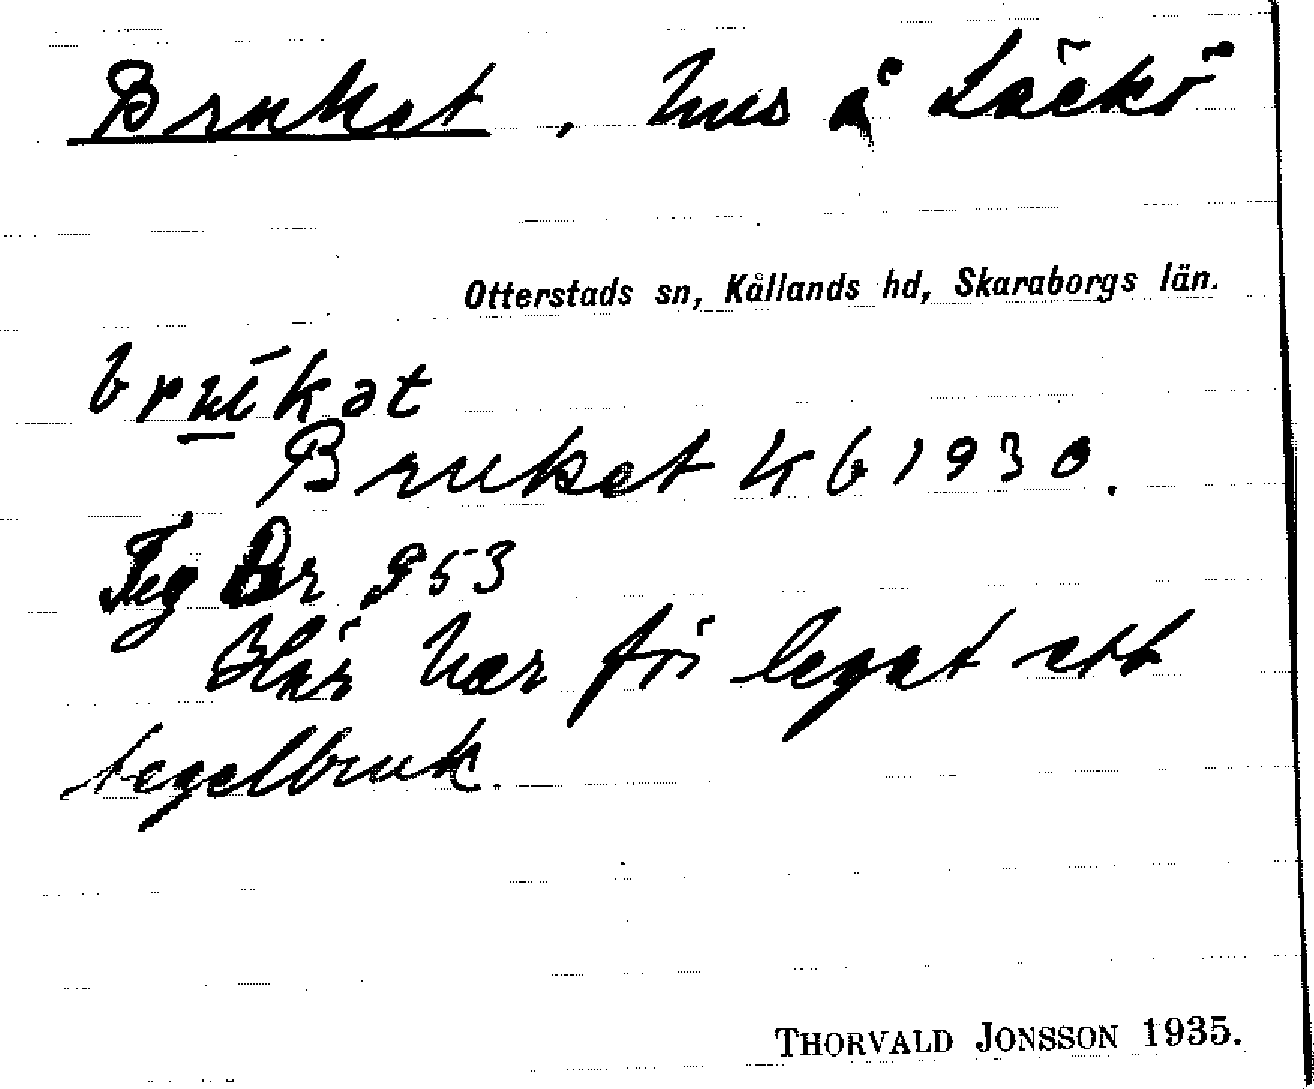 Bruket, hus å Läckö
Otterstads sn, Kållands hd, Skaraborgs län.
Bruket Kb 1930.
Teg Br 953
Här har för legat ett
tegelbruk.
THORVALD JONSSON 1935.